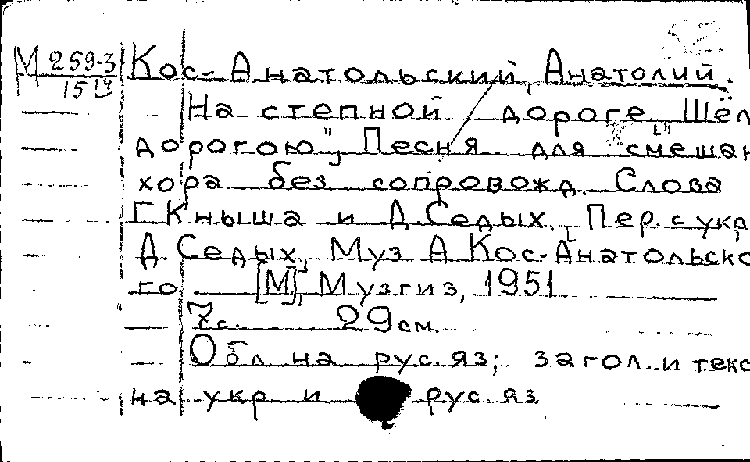 М 259-3 Кос-Анатольский, Анатолий.
15
На степной дороге „Шёл
дорогою", Песня для смешан
хора без сопровожд. Слова
Г. Кныша и Д. Седых. Пер. с укр.
Д. Седых, Муз. А. Кос-Анатольско
го [М], Музгиз, 1951
7 с. 29 см.
Обл. на рус. яз; загол. и текс
на укр. и рус. яз.